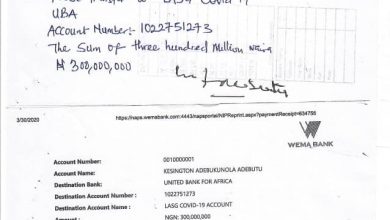 UBA
Account Number:- 1022751273
The Sum of three hundred Million Naira
₦ 300,000,000
3/30/2020
https://naps.wemabank.com:4443/napsportal/NIPReprint.aspx?paymentReceipt=634755
WEMA BANK
Account Number: 0010000001
Account Name: KESINGTON ADEBUKUNOLA ADEBUTU
Destination Bank: UNITED BANK FOR AFRICA
Destination Account: 1022751273
Destination Account Name: LASG COVID-19 ACCOUNT
Amount: NGN: 300,000,000